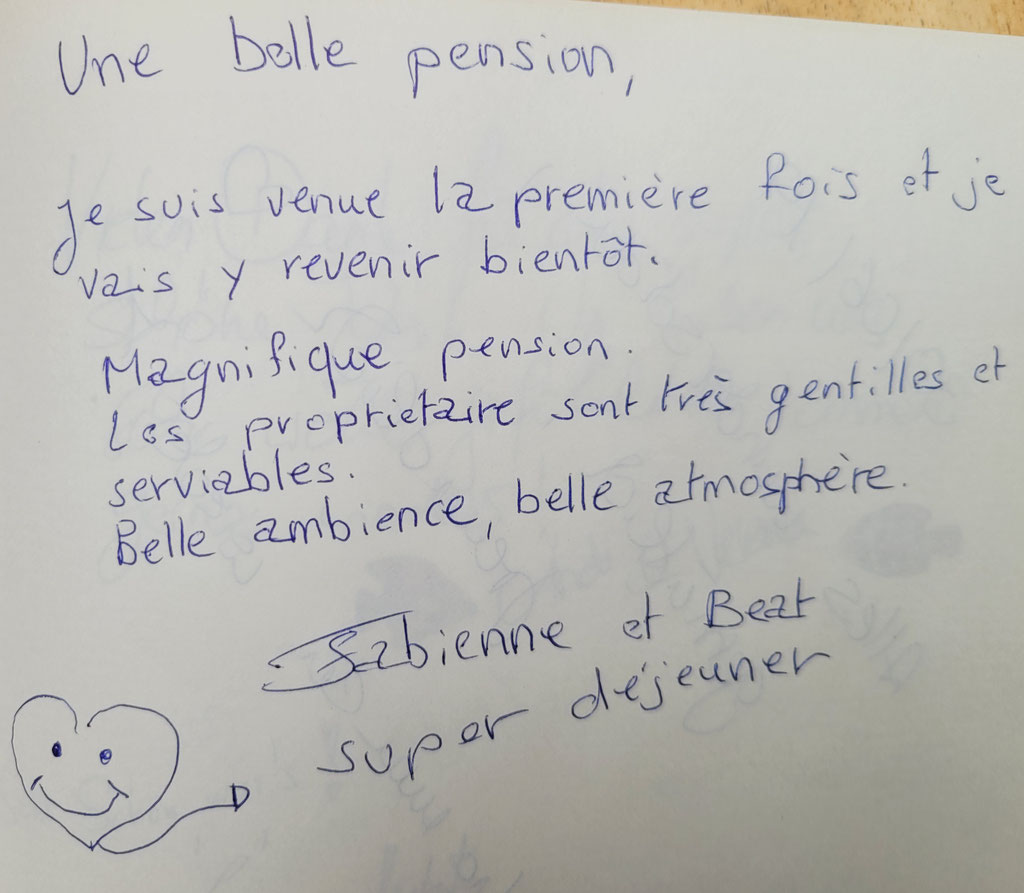 Une belle pension,
Je suis venue la première fois et je
vais y revenir bientôt.
Magnifique pension.
Les proprietaire sont très gentilles et
serviables.
Belle ambience, belle atmosphère.
Fabienne et Beat
super déjeuner